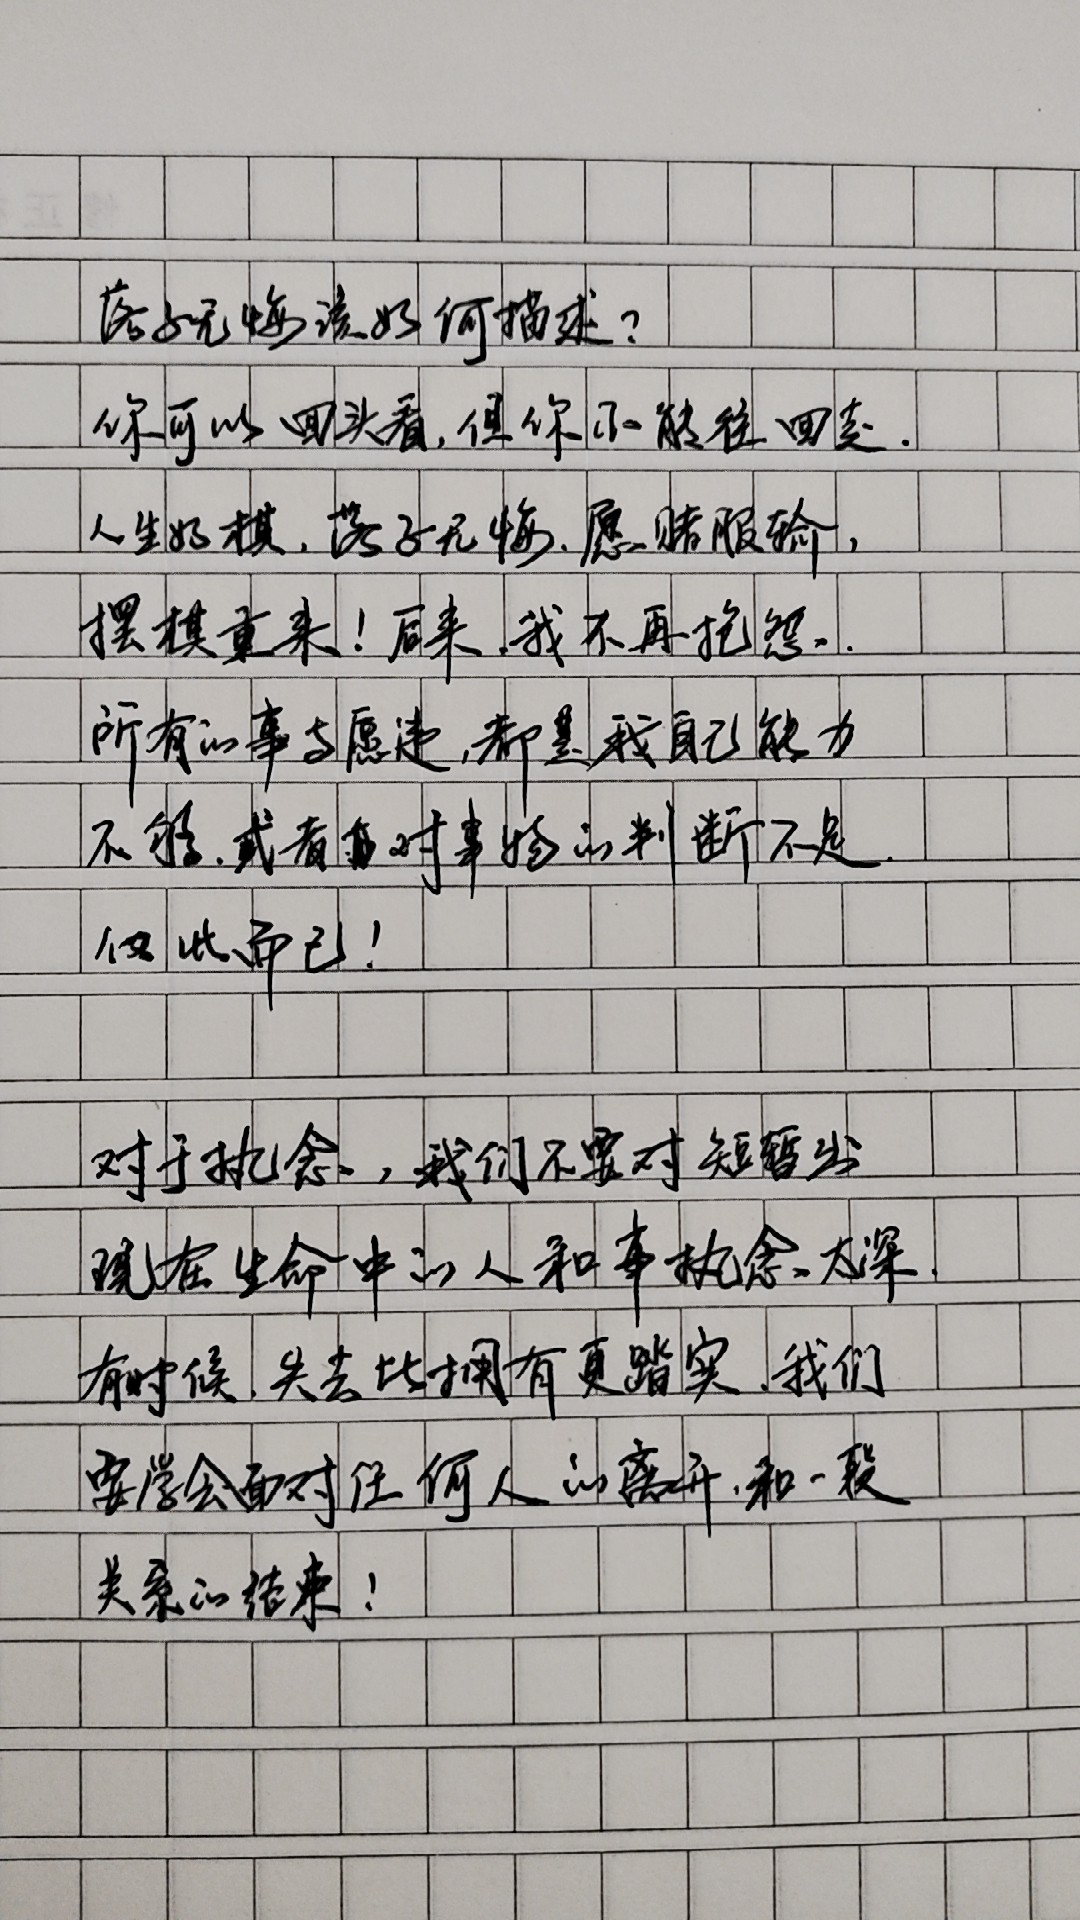 落子无悔该如何描述？
你可以回头看，但你不能往回走.
人生如棋，落子无悔、愿赌服输，
摆棋重来！后来，我不再抱怨.
所有的事与愿违，都是我自己能力
不够，或者由对事物的判断不足.
仅此而已！
对于执念，我们不要对短暂出
现在生命中的人和事执念太深.
有时候，失去比拥有更踏实，我们
要学会面对任何人的离开，和一段
关系的结束！